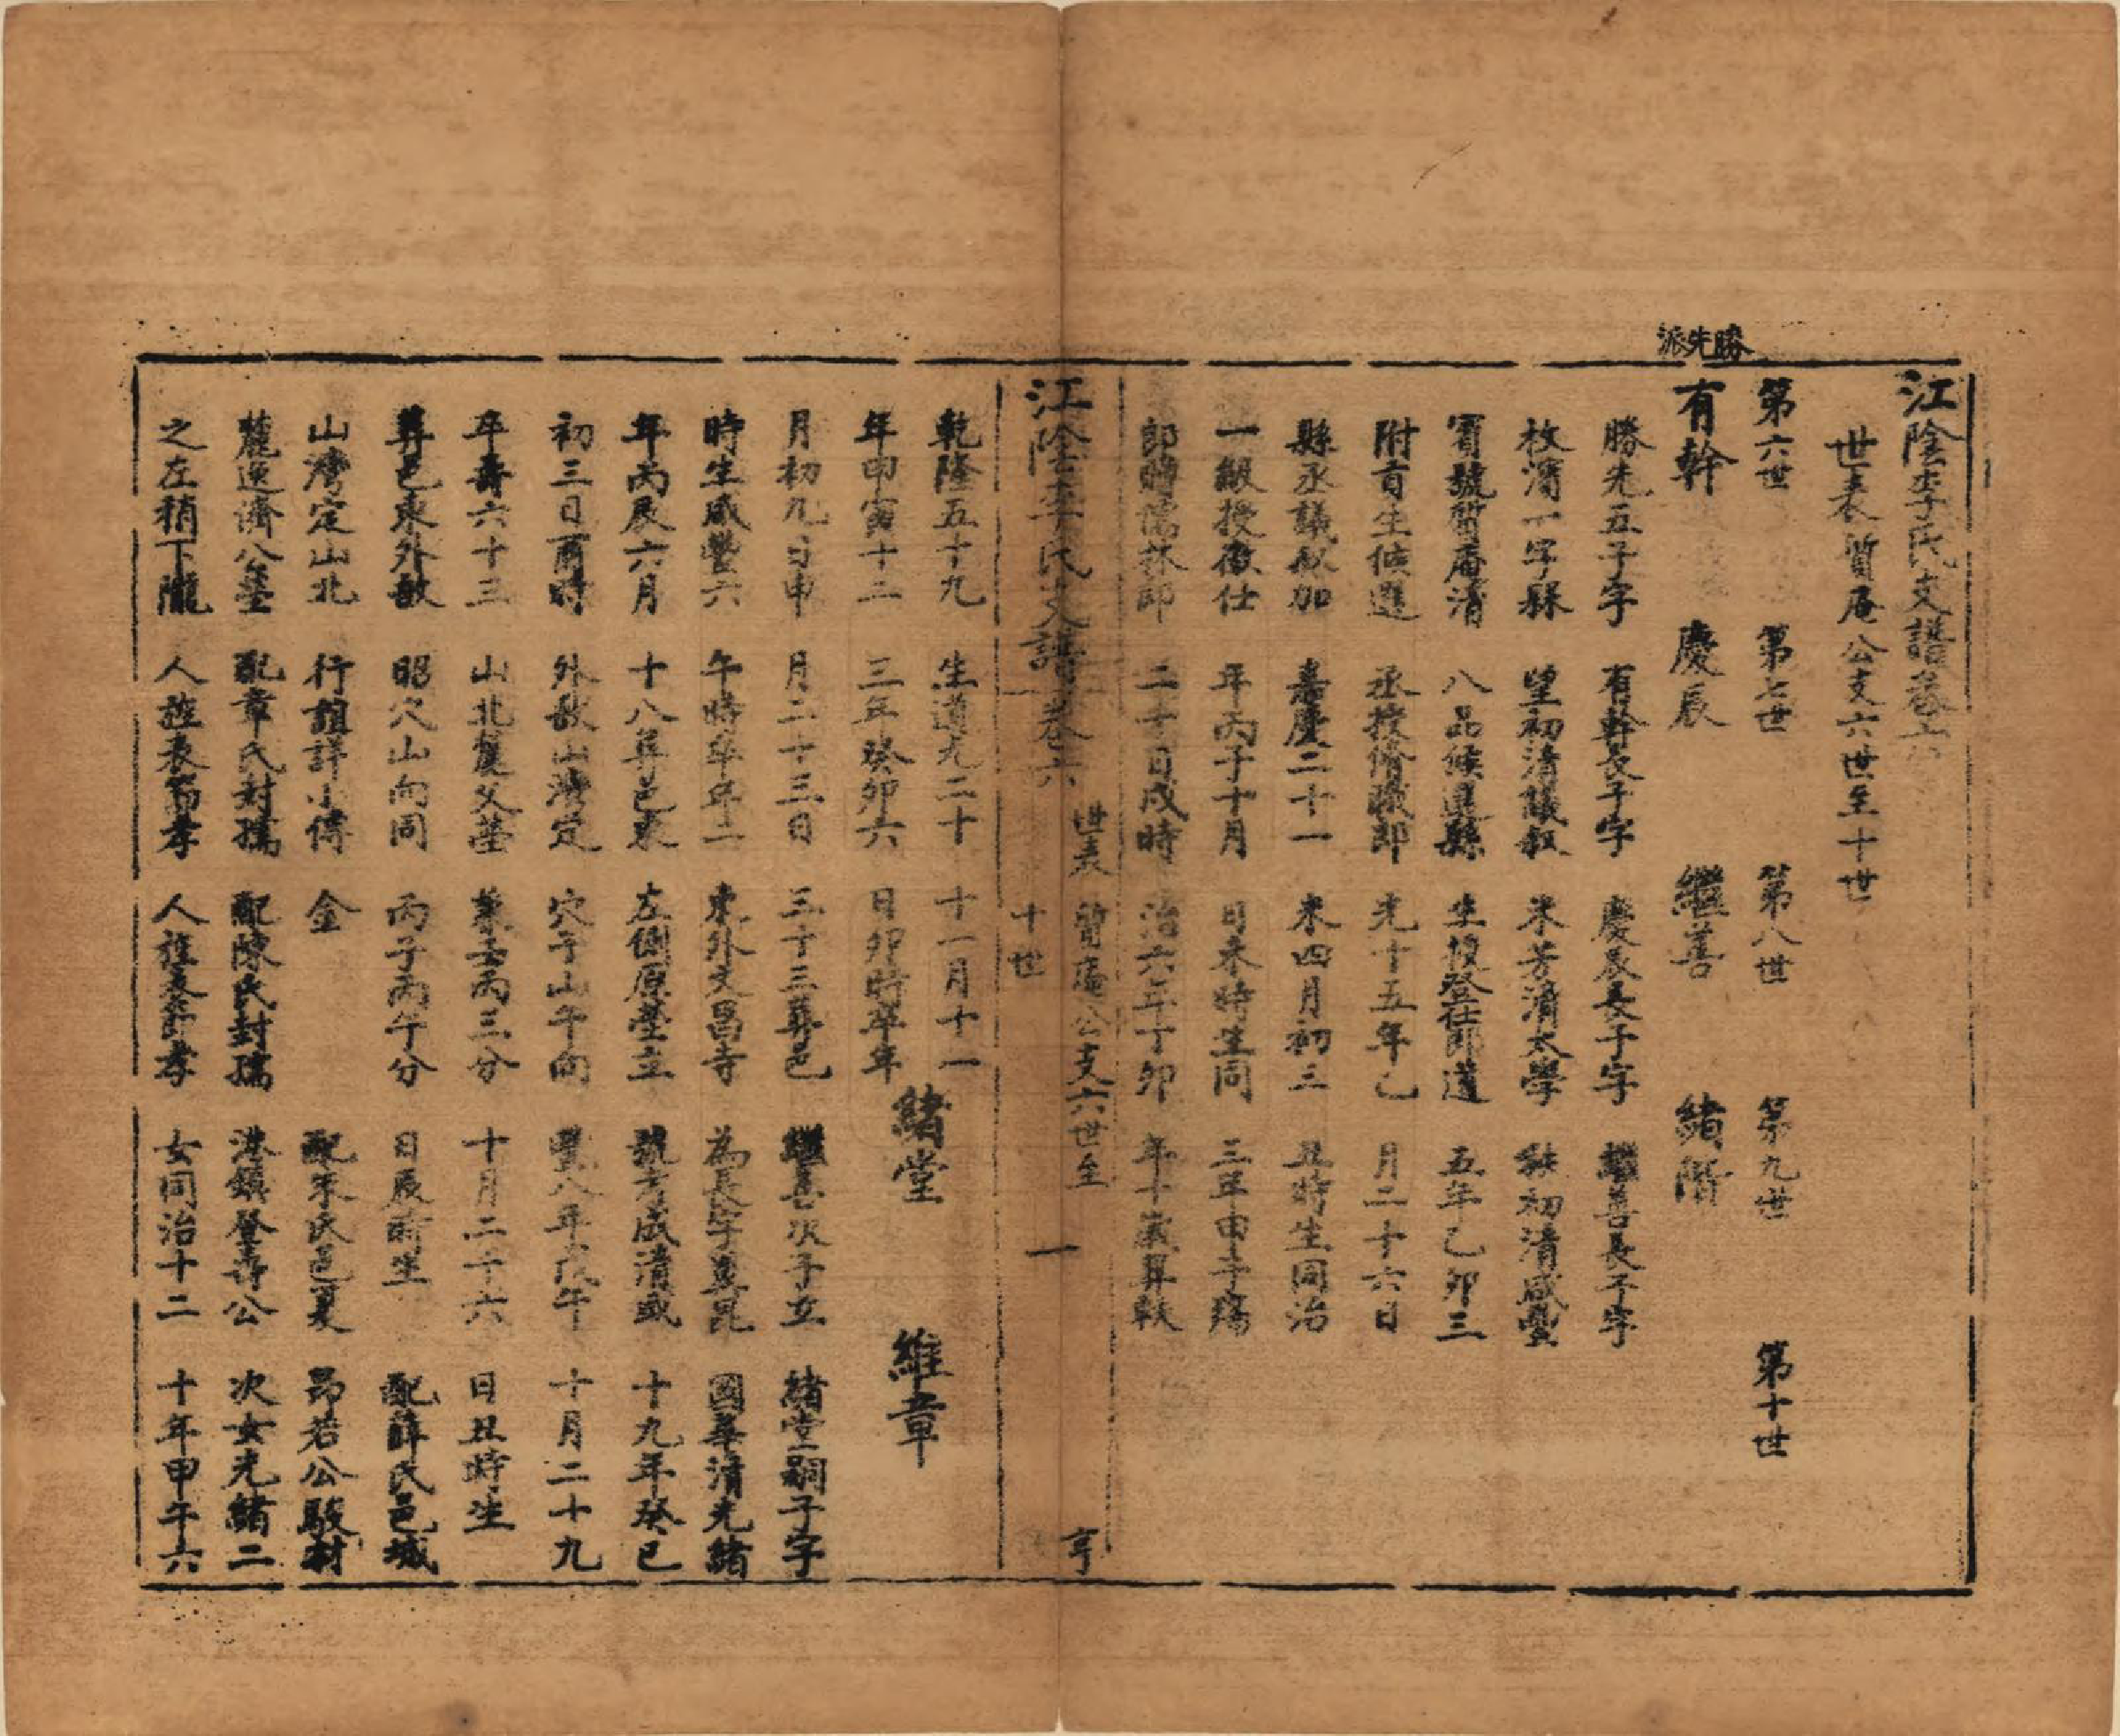 江陰李氏支譜卷六
世表質庵公支六世至十世
第六世 第七世 第八世 第九世 第十世
勝先派
有幹 慶辰 繼善 緒階
勝先五子字 有幹長子字 慶辰長子字 繼善長子字
枚濱一字縣 望初清議敘 米芳清太學 秋初清咸豐
賓號質庵清 八品候選縣 生授登仕郎道 五年乙卯三
附貢生候選 丞授脩職郎 光十五年乙 月二十六日
縣丞議敘加 嘉慶二十一 未四月初三 丑時生同治
一級授徵仕 年丙子十月 日未時生同 三年甲子殤
郎贈儒林郎 二十日戌時 治六年丁卯 年十歲葬敔
江陰李氏支譜卷六 世表 質庵公支六世至十世 一 亨
乾隆五十九 生道光二十 十一月十一
年甲寅十二 三年癸卯六 日卯時卒年 緒堂 維章
月初九日申 月二十三日 三十三葬邑 繼善次子立 緒堂嗣子字
時生咸豐六 午時卒年二 東外文昌寺 為長字蓂昆 國華清光緒
年丙辰六月 十八葬邑東 左側原塋立 號方成清咸 十九年癸巳
初三日酉時 外敔山灣定 穴子山午向 豐八年戊午 十月二十九
卒壽六十三 山北麓父塋 兼壬丙三分 十月二十六 日丑時生
葬邑東外敔 昭穴山向同 丙子丙午分 日辰時生 配薛氏邑城
山灣定山北 行誼詳小傳 金 配朱氏邑夏 昂若公駿材
麓逕濟公塋 配章氏封孺 配陳氏封孺 港鎮登壽公 次女光緒二
之左稍下隴 人旌表節孝 人旌表節孝 女同治十二 十年甲午六